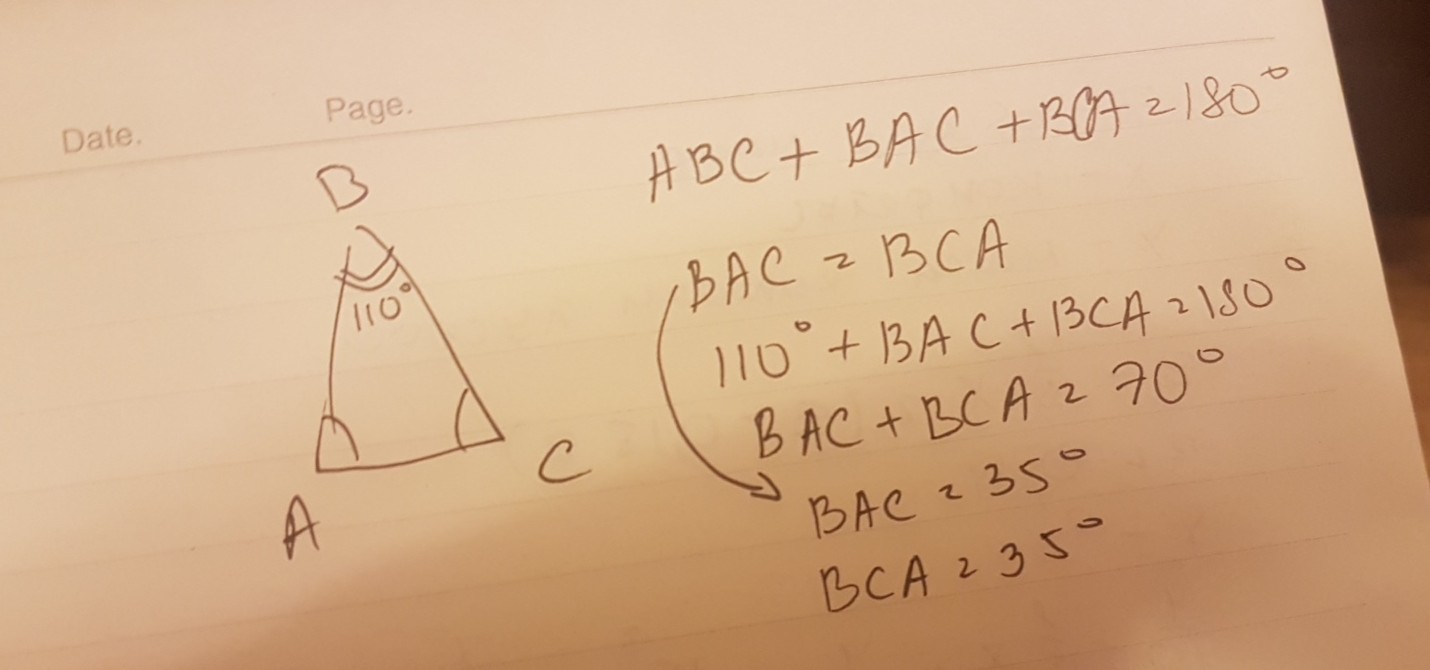 Date.
Page.
B
110°
A
C
ABC + BAC + BCA = 180°
BAC = BCA
110° + BAC + BCA = 180°
BAC + BCA = 70°
BAC = 35°
BCA = 35°